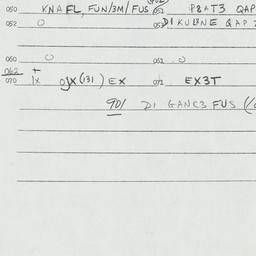 050 KNAFL, FUN/3M/FUS 051 P8AT3 QAP
052 O 053 DI KUL8NE QAP
060 O 061 O
062 +
070 1X (131) EX 071 EX3T
901 DI GANC3 FUS